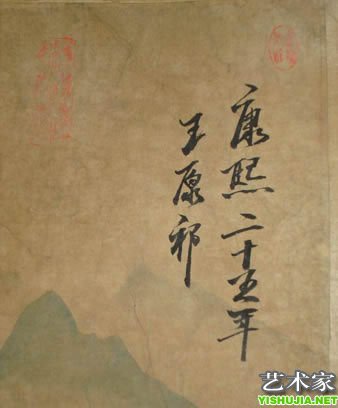 康熙二十五年
王原祁
艺术家
YISHUJIA.NET